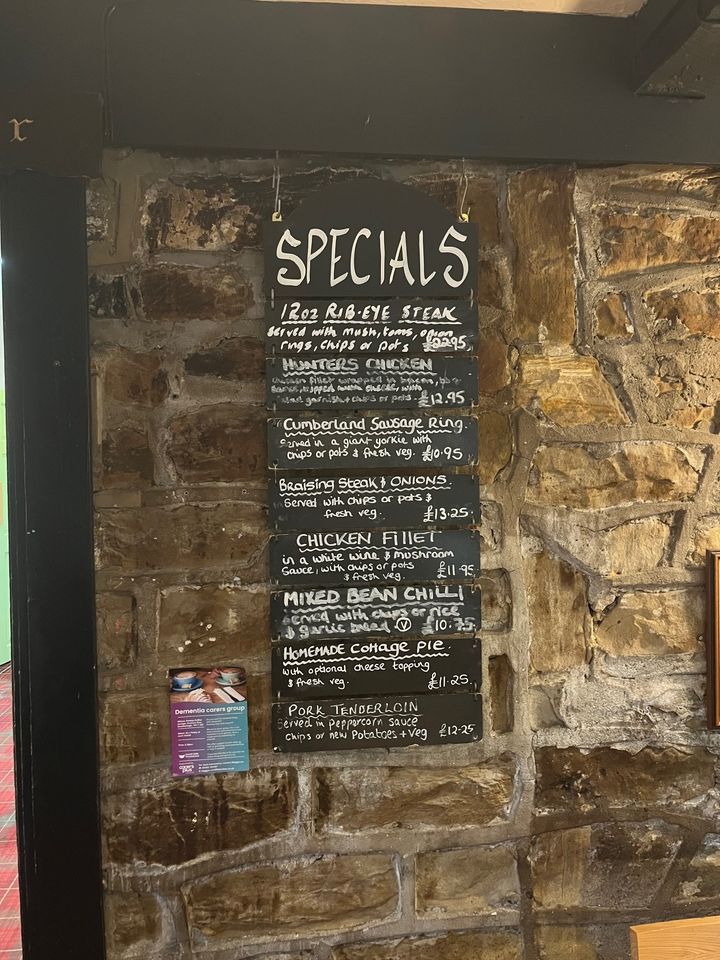 r
SPECIALS
12oz RIB-EYE STEAK
Served with mush, toms, onion
rings, chips or pots £22.95
HUNTERS CHICKEN
Chicken fillet wrapped in bacon, bbq
sauce, topped with cheese, with
salad garnish + chips or pots. £12.95
Cumberland Sausage Ring.
Served in a giant yorkie with
chips or pots & fresh veg. £10.95
BRAISING Steak & ONIONS.
Served with chips or pots &
fresh veg. £13.25.
CHICKEN FILLET
in a white wine & mushroom
Sauce, with chips or pots
& fresh veg. £11.95
MIXED BEAN CHILLI
served with chips or rice
& garlic bread. V £10.75
HOMEMADE Cottage PIE.
with optional cheese topping
& fresh veg. £11.25.
PORK TENDERLOIN
Served in peppercorn sauce
chips or new Potatoes + Veg £12.25
Dementia carers group
carers
plus